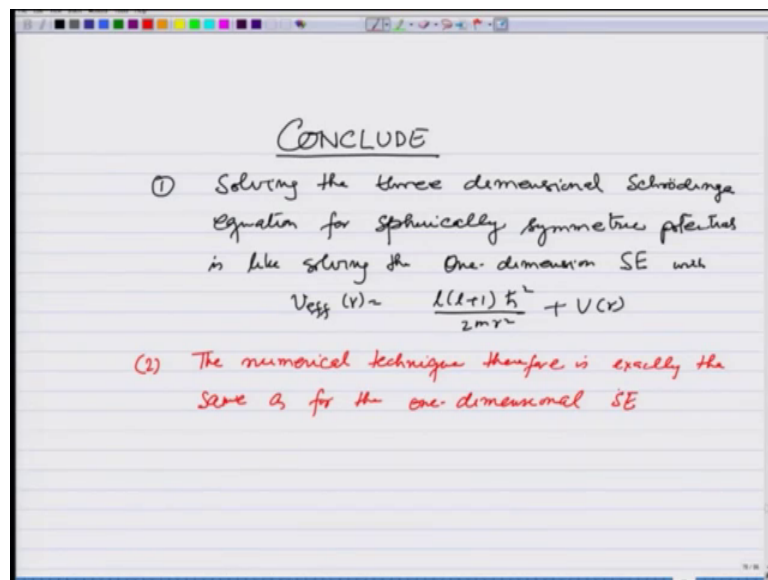 CONCLUDE
① Solving the three dimensional Schrödinge
equation for spherically symmetric potentials
is like solving the One-dimension SE with
Veff (r) = l(l+1) ℏ² / 2mr² + V(r)
(2) The numerical technique therefore is exactly the
same as for the one-dimensional SE